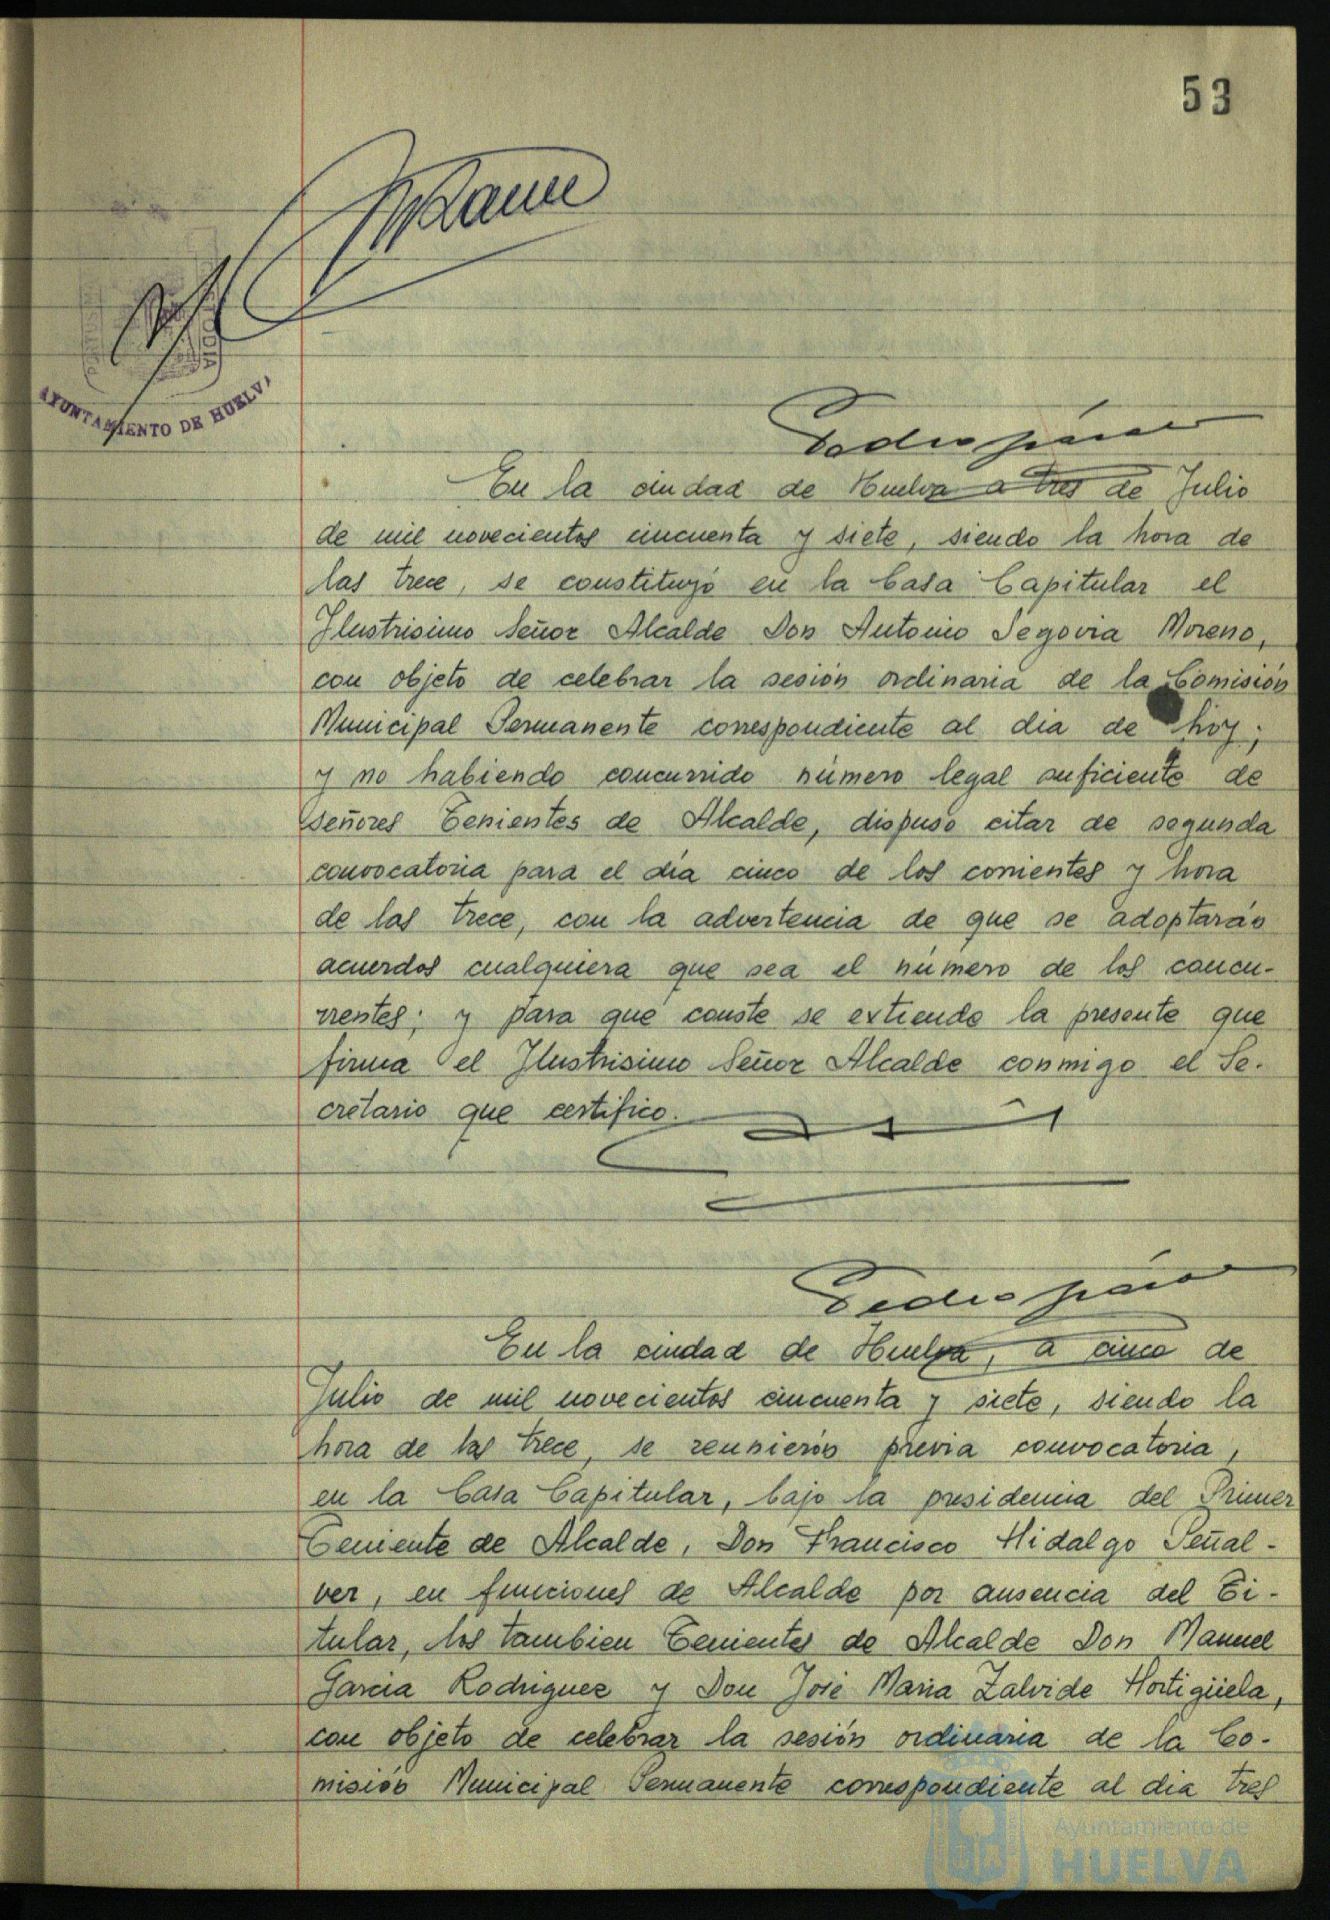 53
PORTUS MA
STODIA
AYUNTAMIENTO DE HUELVA
En la ciudad de Huelva a tres de Julio
de mil novecientos cincuenta y siete, siendo la hora de
las trece, se constituyó en la Casa Capitular el
Ilustrisimo Señor Alcalde Don Antonio Segovia Moreno,
con objeto de celebrar la sesión ordinaria de la Comisión
Municipal Permanente correspondiente al dia de hoy;
y no habiendo concurrido número legal suficiente de
señores Tenientes de Alcalde, dispuso citar de segunda
convocatoria para el día cinco de los corrientes y hora
de las trece, con la advertencia de que se adoptarán
acuerdos cualquiera que sea el número de los concu-
rrentes; y para que conste se extiende la presente que
firma el Ilustrisimo Señor Alcalde conmigo el Se-
cretario que certifico.
En la ciudad de Huelva, a cinco de
Julio de mil novecientos cincuenta y siete, siendo la
hora de las trece, se reunierón previa convocatoria,
en la Casa Capitular, bajo la presidencia del Primer
Teniente de Alcalde, Don Francisco Hidalgo Peñal-
ver, en funciones de Alcalde por ausencia del Ti-
tular, los tambien Tenientes de Alcalde Don Manuel
Garcia Rodriguez y Don José Maria Zalvide Hortigüela,
con objeto de celebrar la sesión ordinaria de la Co-
misión Municipal Permanente correspondiente al dia tres
Ayuntamiento de
HUELVA